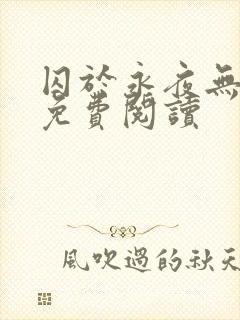 囚於永夜無
免費閱讀
風吹過的秋天